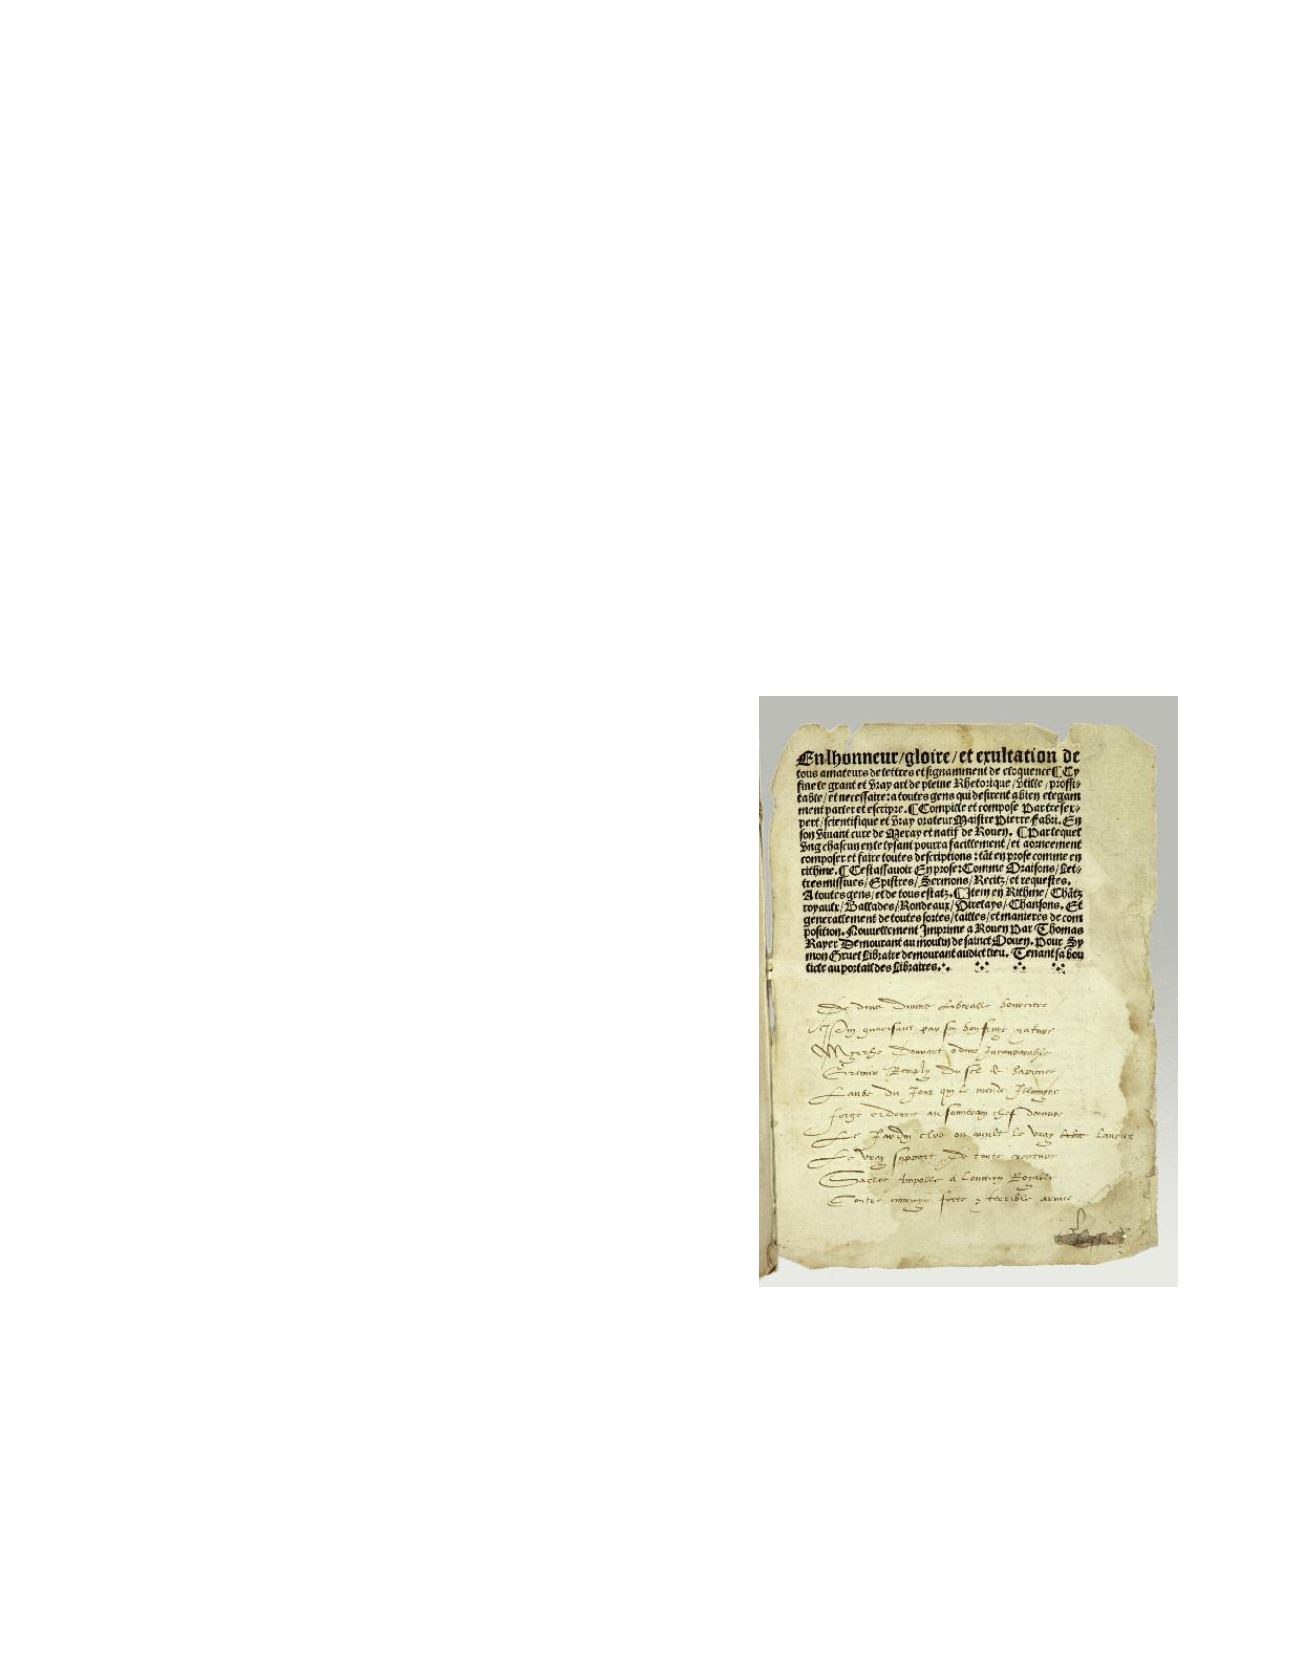 En lhonneur/gloire/et exultation de
tous amateurs de lettres et signamment de eloquence ¶ Cy
fine le grant et vray art de pleine Rhetorique/vtille/proffi-
table/et necessaire: a toutes gens qui desirent a bien elegam
ment parler et escripre. ¶ Compille et compose Par tresex-
pert/scientifique et vray orateur Maistre Pierre Fabri. En
son viuant cure de Meray et natif de Rouen. ¶ Par lequel
vng chascun en le lysant pourra facillement/et aorneement
composer et faire toutes descriptions: tãt en prose comme en
rithme. ¶ Cestassauoir En prose: Comme Oraisons/Let-
tres missiues/Epistres/Sermons/Recitz/et requestes.
A toutes gens/et de tous estatz. ¶ Item en Rithme/Chãtz
royaulx/Ballades/Rondeaux/Virelays/Chansons. Et
generallement de toutes sortes/tailles/et manieres de com
position. Nouuellement Imprime a Rouen Par Thomas
Rayer Demourant au moulin de sainct Ouen. Pour Sy
mon Gruel Libraire demourant audict lieu. Tenant sa bou
ticle au portail des Libraires.
De dieu
par son
donnant
Remply Du sel de Sapience
Laube Du Jour qui le monde Illumine
forge
Le Jardin clos ou le vray
Le vray support De toute creature
a
Contre forte & terrible armee